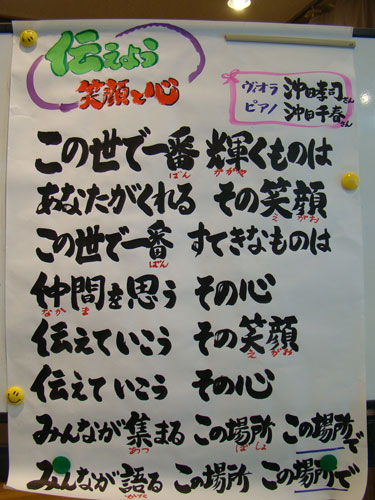 伝えよう
笑顔と心
ヴィオラ 沖田孝司さん
ピアノ 沖田千春さん
この世で一番 輝くものは
ばん かがや
あなたがくれる その笑顔
えがお
この世で一番 すてきなものは
ばん
仲間を思う その心
なかま
伝えていこう その笑顔
えがお
伝えていこう その心
みんなが集まる この場所 この場所で
あつ ばしょ
みんなが語る この場所 この場所で
かた